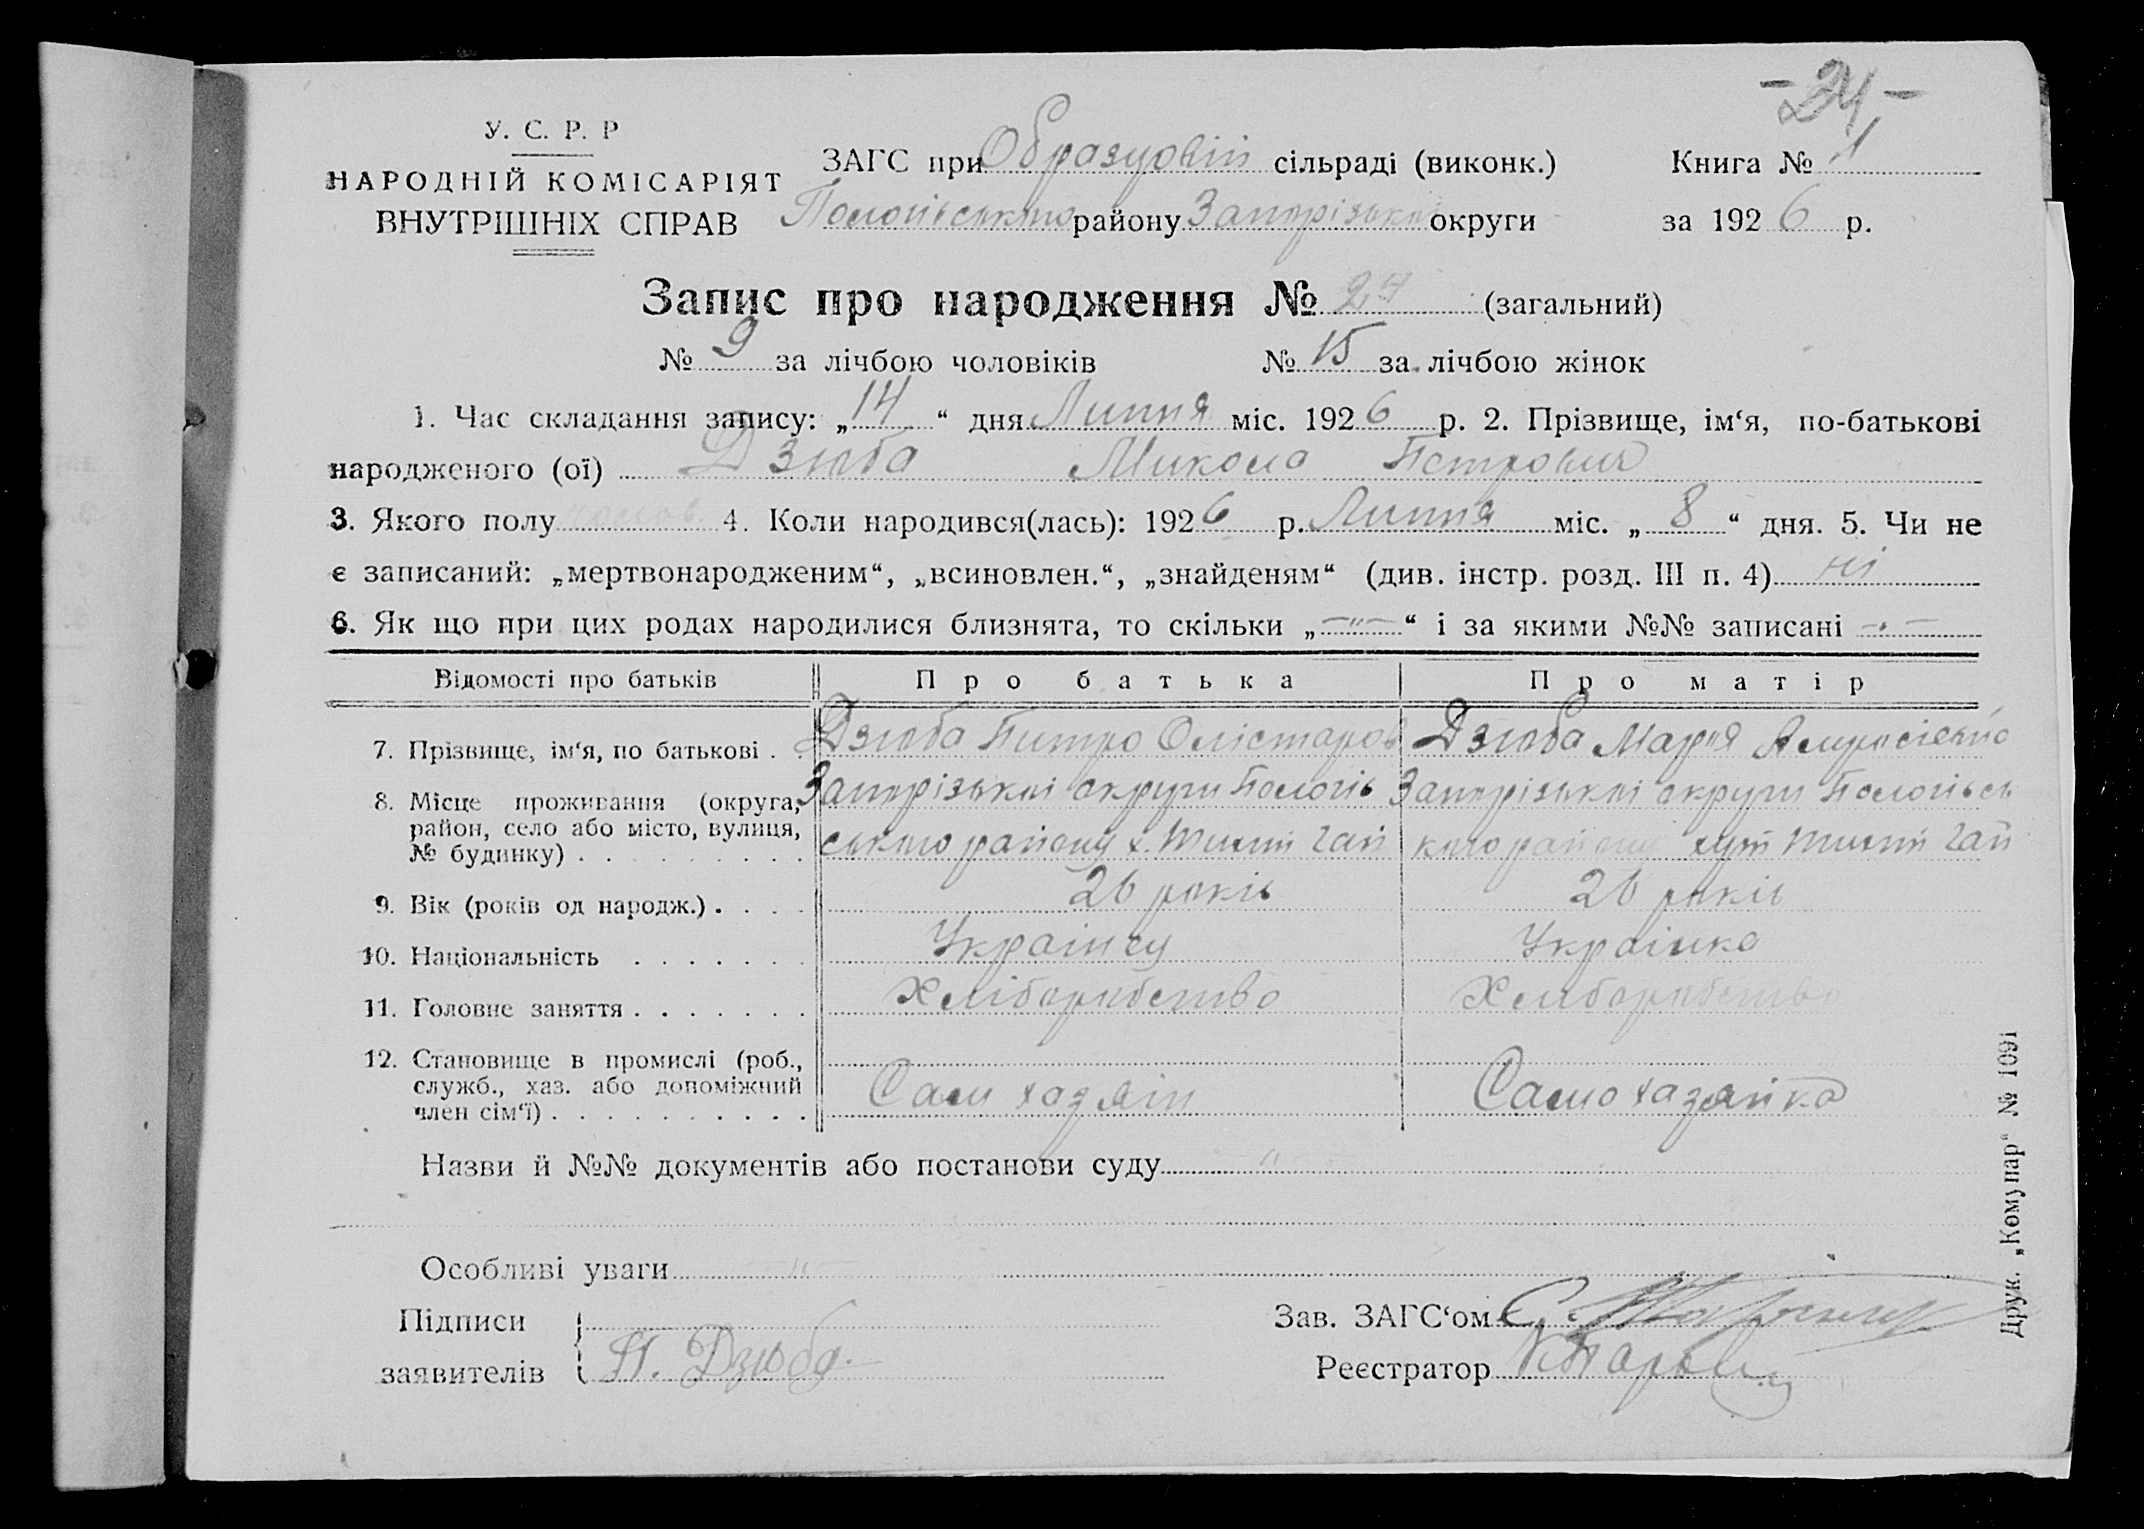 -24-
У. С. Р. Р
НАРОДНІЙ КОМІСАРІЯТ
ВНУТРІШНІХ СПРАВ
ЗАГС при Образцовій сільраді (виконк.)
Книга № 1
Пологівського району Запорізької округи
за 1926 р.
Запис про народження № 24 (загальний)
№ 9 за лічбою чоловіків № 15 за лічбою жінок
1. Час складання запису: „14“ дня Липня міс. 1926 р. 2. Прізвище, ім‘я, по-батькові
народженого (ої) Дзюба Микола Петрович
3. Якого полу 4. Коли народився(лась): 1926 р. Липня міс. „8“ дня. 5. Чи не
є записаний: „мертвонародженим“, „всиновлен.“, „знайденям“ (див. інстр. розд. III п. 4) ні
6. Як що при цих родах народилися близнята, то скільки „-"-“ і за якими №№ записані -"-
Відомості про батьків Про батька Про матір
7. Прізвище, ім‘я, по батькові . . Дзюба Питро Дзюба Марія
8. Місце проживання (округа, район, село або місто, вулиця, № будинку) . . . . . . . . .
Запорізької округи Пологів
ського району х. Тихий Гай
Запорізької округи Пологівсь
кого району хут Тихий Гай
9. Вік (років од народж.) . . . . 26 років 26 років
10. Національність . . . . . . . Українец Українка
11. Головне заняття . . . . . . . Хліборобство Хліборобство
12. Становище в промислі (роб., служб., хаз. або допоміжний член сім‘ї) . . . . . . . . . .
Сам хазяїн Само хазяйка
Назви й №№ документів або постанови суду "
Особливі уваги -"-
Підписи
заявителів
П. Дзюба.
Зав. ЗАГС‘ом
Реєстратор
Друк. „Комунар“ № 1091